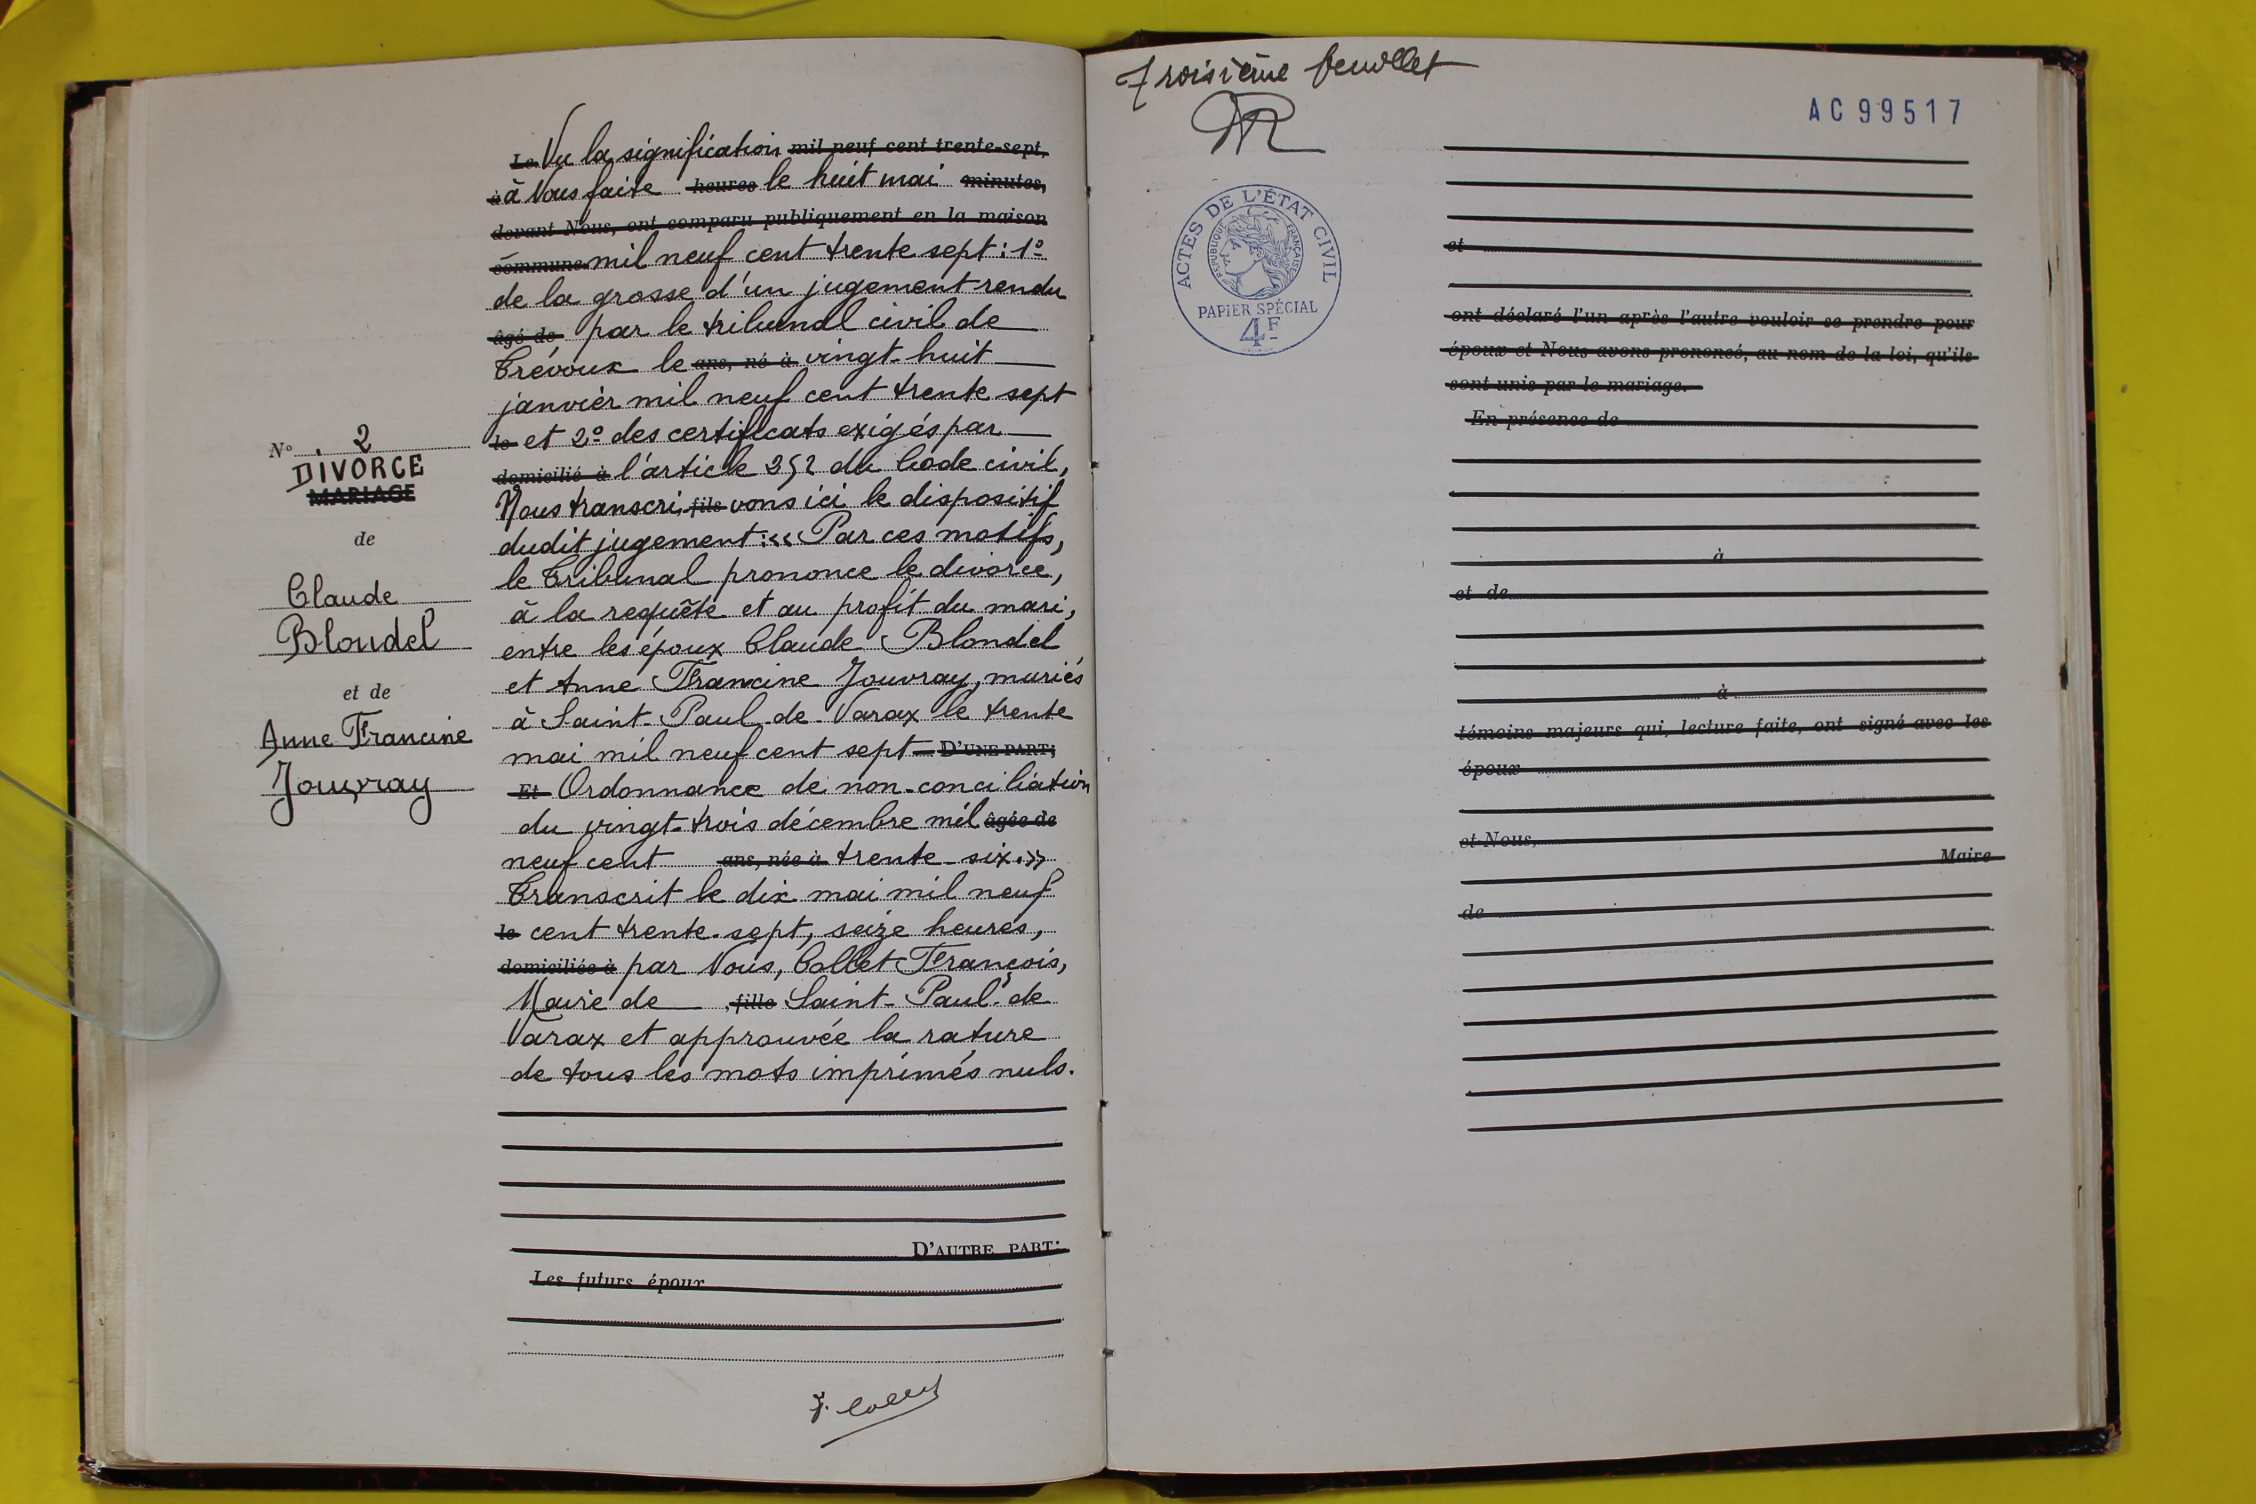 Le Vu la signification mil neuf cent trente-sept,
à à Nous faite heures le huit mai minutes,
devant Nous, ont comparu publiquement en la maison
commune mil neuf cent trente sept : 1°
de la grosse d'un jugement rendu
âgé de par le tribunal civil de
Trévoux le ans, né à vingt-huit
janvier mil neuf cent trente sept
le et 2° des certificats exigés par
domicilié à l'article 252 du Code civil,
Nous transcri fils vons ici le dispositif
dudit jugement : « Par ces motifs,
le Tribunal prononce le divorce,
à la requête et au profit du mari,
entre les époux Claude Blondel
et Anne Francine Jouvray, mariés
à Saint-Paul-de-Varax le trente
mai mil neuf cent sept D'UNE PART;
Et Ordonnance de non-conciliation
du vingt-trois décembre mil âgée de
neuf cent ans, née à trente-six. »
Transcrit le dix mai mil neuf
le cent trente-sept, seize heures,
domiciliée à par Nous, Collet François,
Maire de , fille Saint-Paul-de
Varax et approuvée la rature
de tous les mots imprimés nuls.
D'AUTRE PART:
Les futurs époux
F. Collet
N° 2
DIVORCE
MARIAGE
de
Claude
Blondel
et de
Anne Francine
Jouvray
Troisième feuillet
AC 99517
ACTES DE L'ÉTAT CIVIL
RÉPUBLIQUE FRANÇAISE
PAPIER SPÉCIAL
4F
et
ont déclaré l'un après l'autre vouloir se prendre pour
époux et Nous avons prononcé, au nom de la loi, qu'ils
sont unis par le mariage.
En présence de
à
et de
à
témoins majeurs qui, lecture faite, ont signé avec les
époux
et Nous,
Maire
de